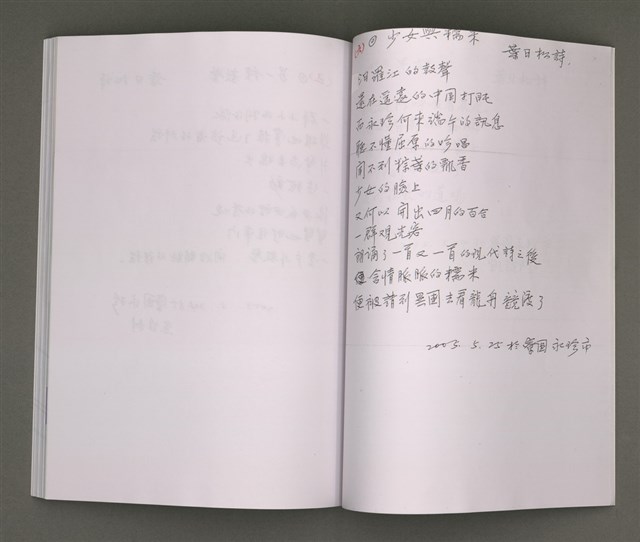 少女與糯米
葉日松詩.
汨羅江的鼓聲
還在遙遠的中國打盹
而永珍何來端午的訊息
聽不懂屈原的吟唱
聞不到粽葉的飄香
少女的臉上
又何以開出四月的百合
一群觀光客
朗誦了一首又一首的現代詩之後
含情脈脈的糯米
便被請到異國去看龍舟競渡了
2005. 5. 25 於寮國永珍市